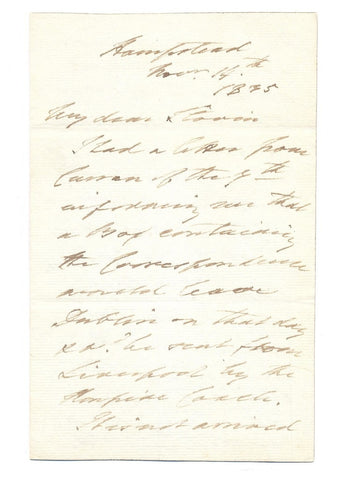 Hampstead
Novr. 14th
1835
My dear
I had a letter from
Curran of the 7th
informing me that
a Box containing
the Correspondence
would leave
Dublin on that day
& wd. be sent from
Liverpool by the
Umpire Coach.
It is not arrived